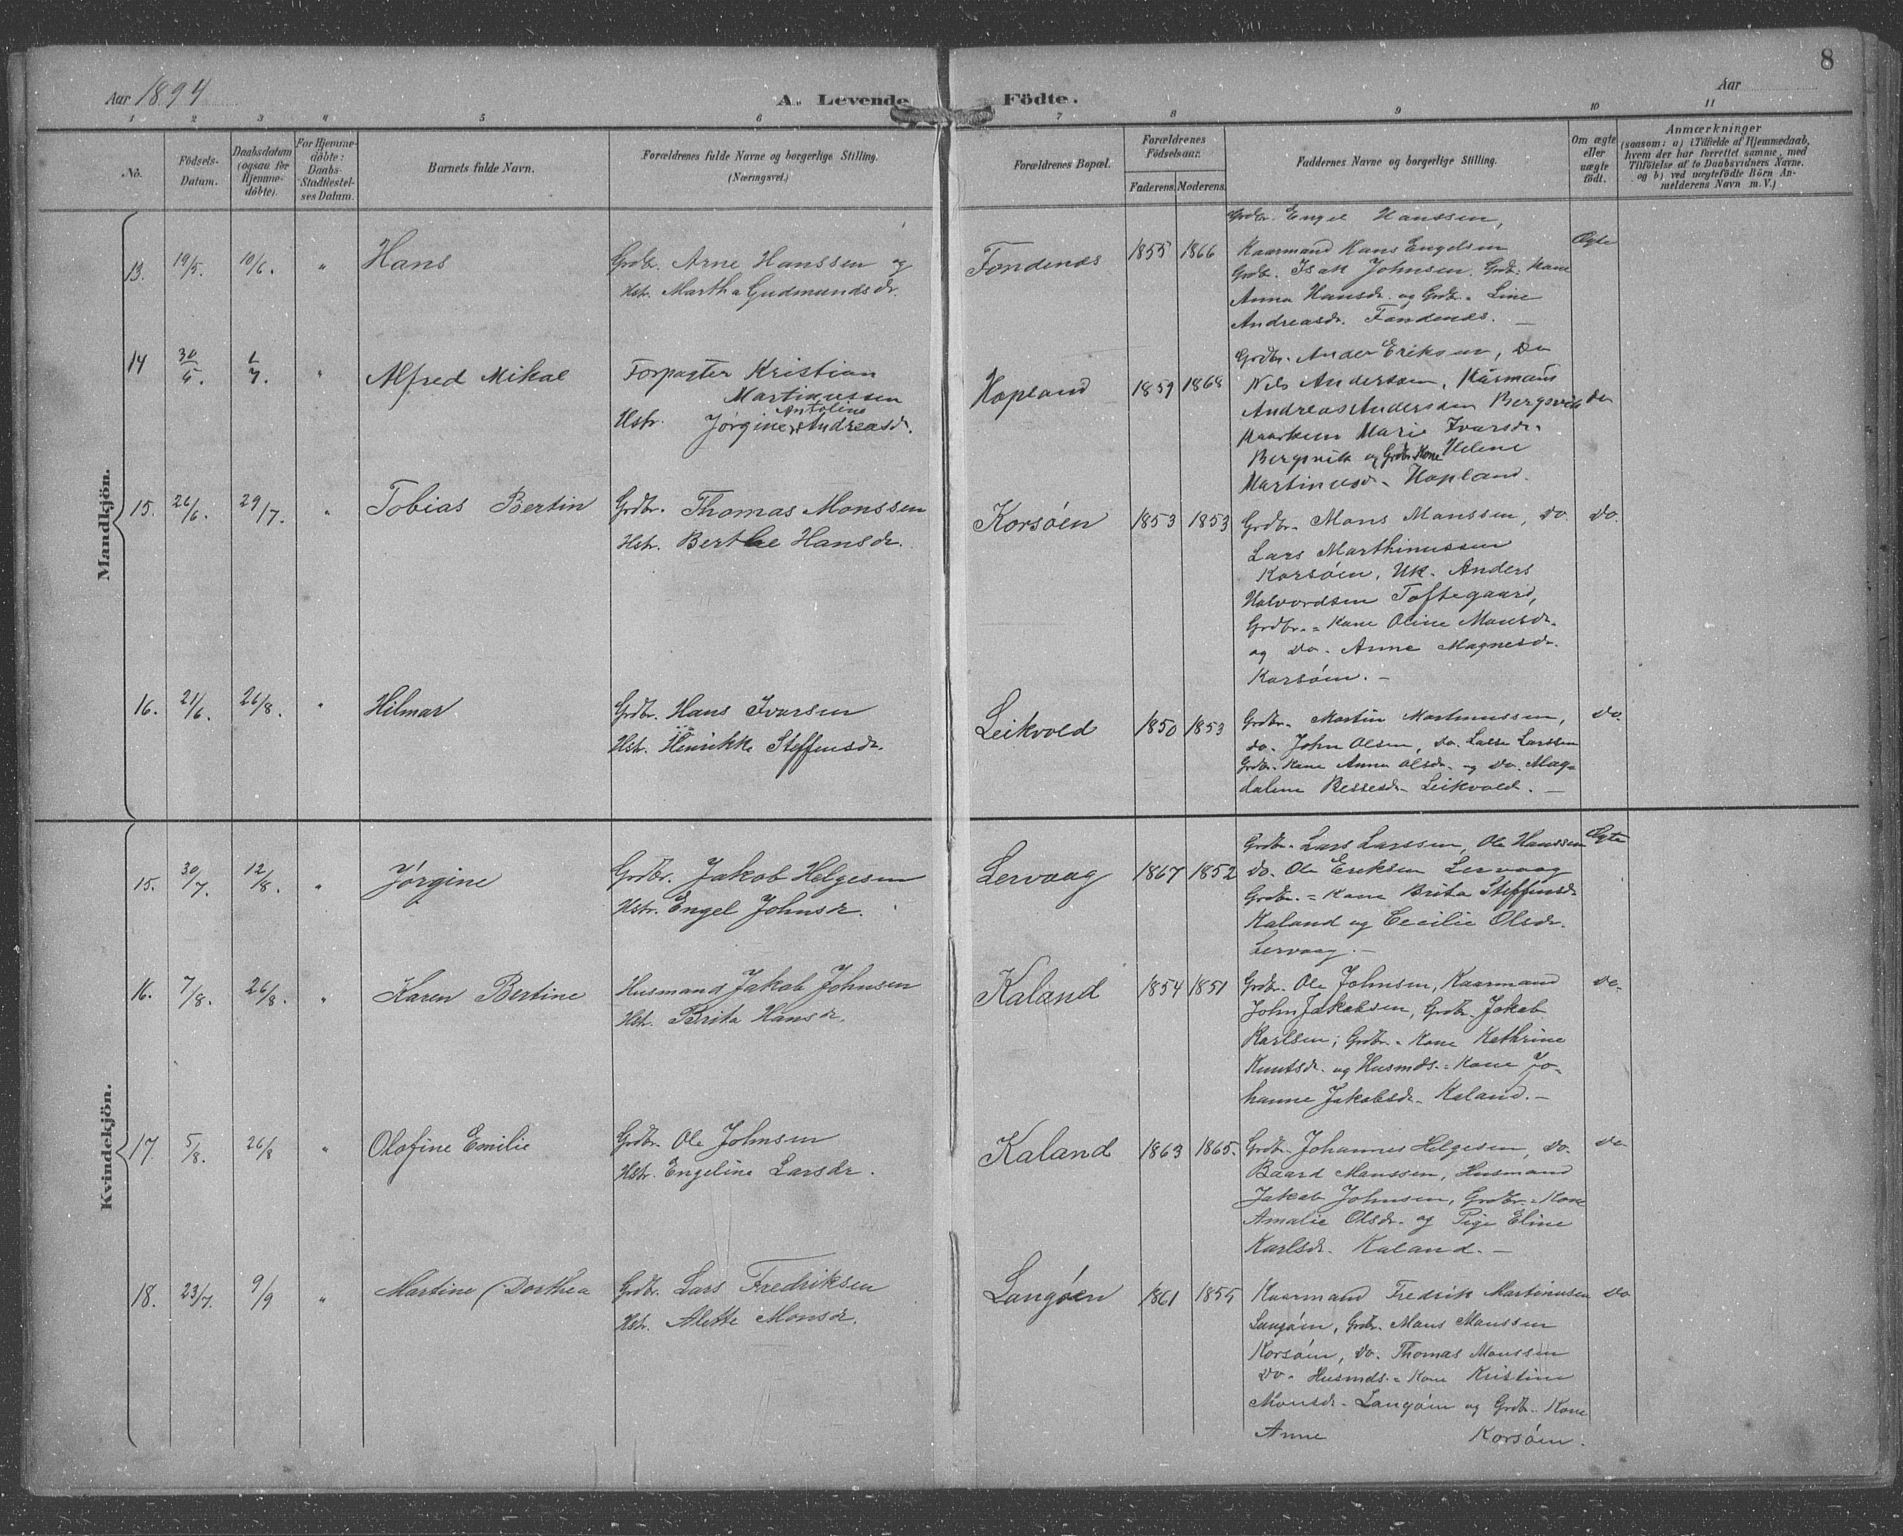 Aar 1894
A. Levende Födte.
Aar
8
1 2 3 4 5 6 7 8 9 10 11
No.
Födsels-Datum.
Daabsdatum (ogsaa for Hjemmedöbte).
For Hjemmedöbte: Daabs-Stadfæstelses Datum.
Barnets fulde Navn.
Forældrenes fulde Navne og borgerlige Stilling.
(Næringsvei.)
Forældrenes Bopæl.
Forældrenes Födselsaar.
Faderens. Moderens.
Faddernes Navne og borgerlige Stilling.
Om ægte eller uægte födt.
Anmærkninger
(saasom: a) i Tilfælde af Hjemmedaab, hvem der har forrettet samme, med Tilföielse af to Daabsvidners Navne. og b) ved uægtefödte Börn Anmelderens Navn m. V.)
Mandkjön.
13. 19/5. 10/6. " Hans
Grdbr. Arne Hanssen og
Hstr. Martha Gudmundsdr.
Fondenæs 1855 1866
Grdbr. Engel Hanssen,
Kaarmand Hans Engelsen
Grdbr. Isak Johnsen. Grdb: Kone
Anna Hansdr. og Grdbr. Line
Andreasdr. Fondenæs. —
Ægte
14 30/5. 1/7. " Alfred Mikal
Forpagter Kristian
Martinussen
Hstr. Jørgine Antoline Andreasdr.
Hopland 1859 1868
Grdbr. Ander Eriksen, Do
Nils Andersen, Kårmand
Andreas Anderssen Bergsvik
Kaarkone Marie Ivarsdr.
Bergsvik og Grdbr. Kone Helene
Martinusdr. Hopland.
do
15. 26/6. 29/7. " Tobias Bertin
Grdbr. Thomas Monssen
Hstr. Berthe Hansdr.
Korsøen 1853 1853
Grdbr. Mons Monssen, do.
Lars Marthinussen
Korsøen, Uk. Anders
Halvordsen Toftegaard,
Grdbr. = Kone Oline Monsdr.
og do. Anne Magnesdr.
Korsøen. —
do.
16. 21/6. 26/8. " Hilmar
Grdbr. Hans Ivarsen
Hstr. Henrikke Steffensdr.
Leikvold 1850 1853
Grdbr. Martin Martinussen,
do. John Olsen, do. Lasse Larssen
Grdbr. Kone Anna Olsdr. og do. Mag-
dalene Bessesdr. Leikvold. —
do.
Kvindekjön.
15. 30/7. 12/8. " Jørgine
Grdbr. Jakob Helgesen
Hstr. Engel Johnsdr.
Lervaag 1867 1852
Grdbr. Lars Larssen, Ole Hanssen
do. Ole Eriksen Lervaag
Grdbr. = Kone Brita Steffensdr.
Kaland og Cecilie Olsdr.
Lervaag. —
Ægte
16. 7/8. 26/8. " Karen Bertine
Husmand Jakob Johnsen
Hstr. Brita Hansdr.
Kaland 1854 1851
Grdbr. Ole Johnsen, Kaarmand
John Jakobsen, Grdbr. Jakob
Karlsen, Grdbr. = Kone Kathrine
Knutsdr. og Husmds. = Kone Jo-
hanne Jakobsdr. Kaland. —
do.
17. 5/8. 26/8 " Olafine Emilie
Grdbr. Ole Johnsen
Hstr. Engeline Larsdr.
Kaland 1863 1865.
Grdbr. Johannes Helgesen, do.
Baard Monssen, Husmand
Jakob Johnsen, Grdbr. = Kone
Amalie Olsdr. og Pige Eline
Karlsdr. Kaland. —
do
18. 23/7. 9/9 " Martine Dorthea
Grdbr. Lars Fredriksen
Hstr. Alette Monsdr.
Langøen 1861 1855
Kaarmand Fredrik Martinusen
Langøen, Grdbr. Mons Monssen
Korsøen, do. Thomas Monssen
do. Husmds. = Kone Kristine
Monsdr. Langøen og Grdbr. Kone
Anne Korsøen.
do